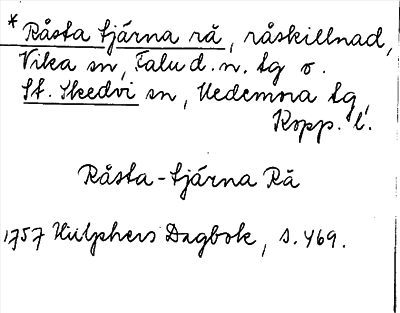 * Råsta tjärna rå, råskillnad,
Vika sn, Falu d. n. tg o.
St. Skedvi sn, Hedemora tg,
Kopp. l.
Råsta-tjärna Rå
1757 Hülphers Dagbok, s. 469.